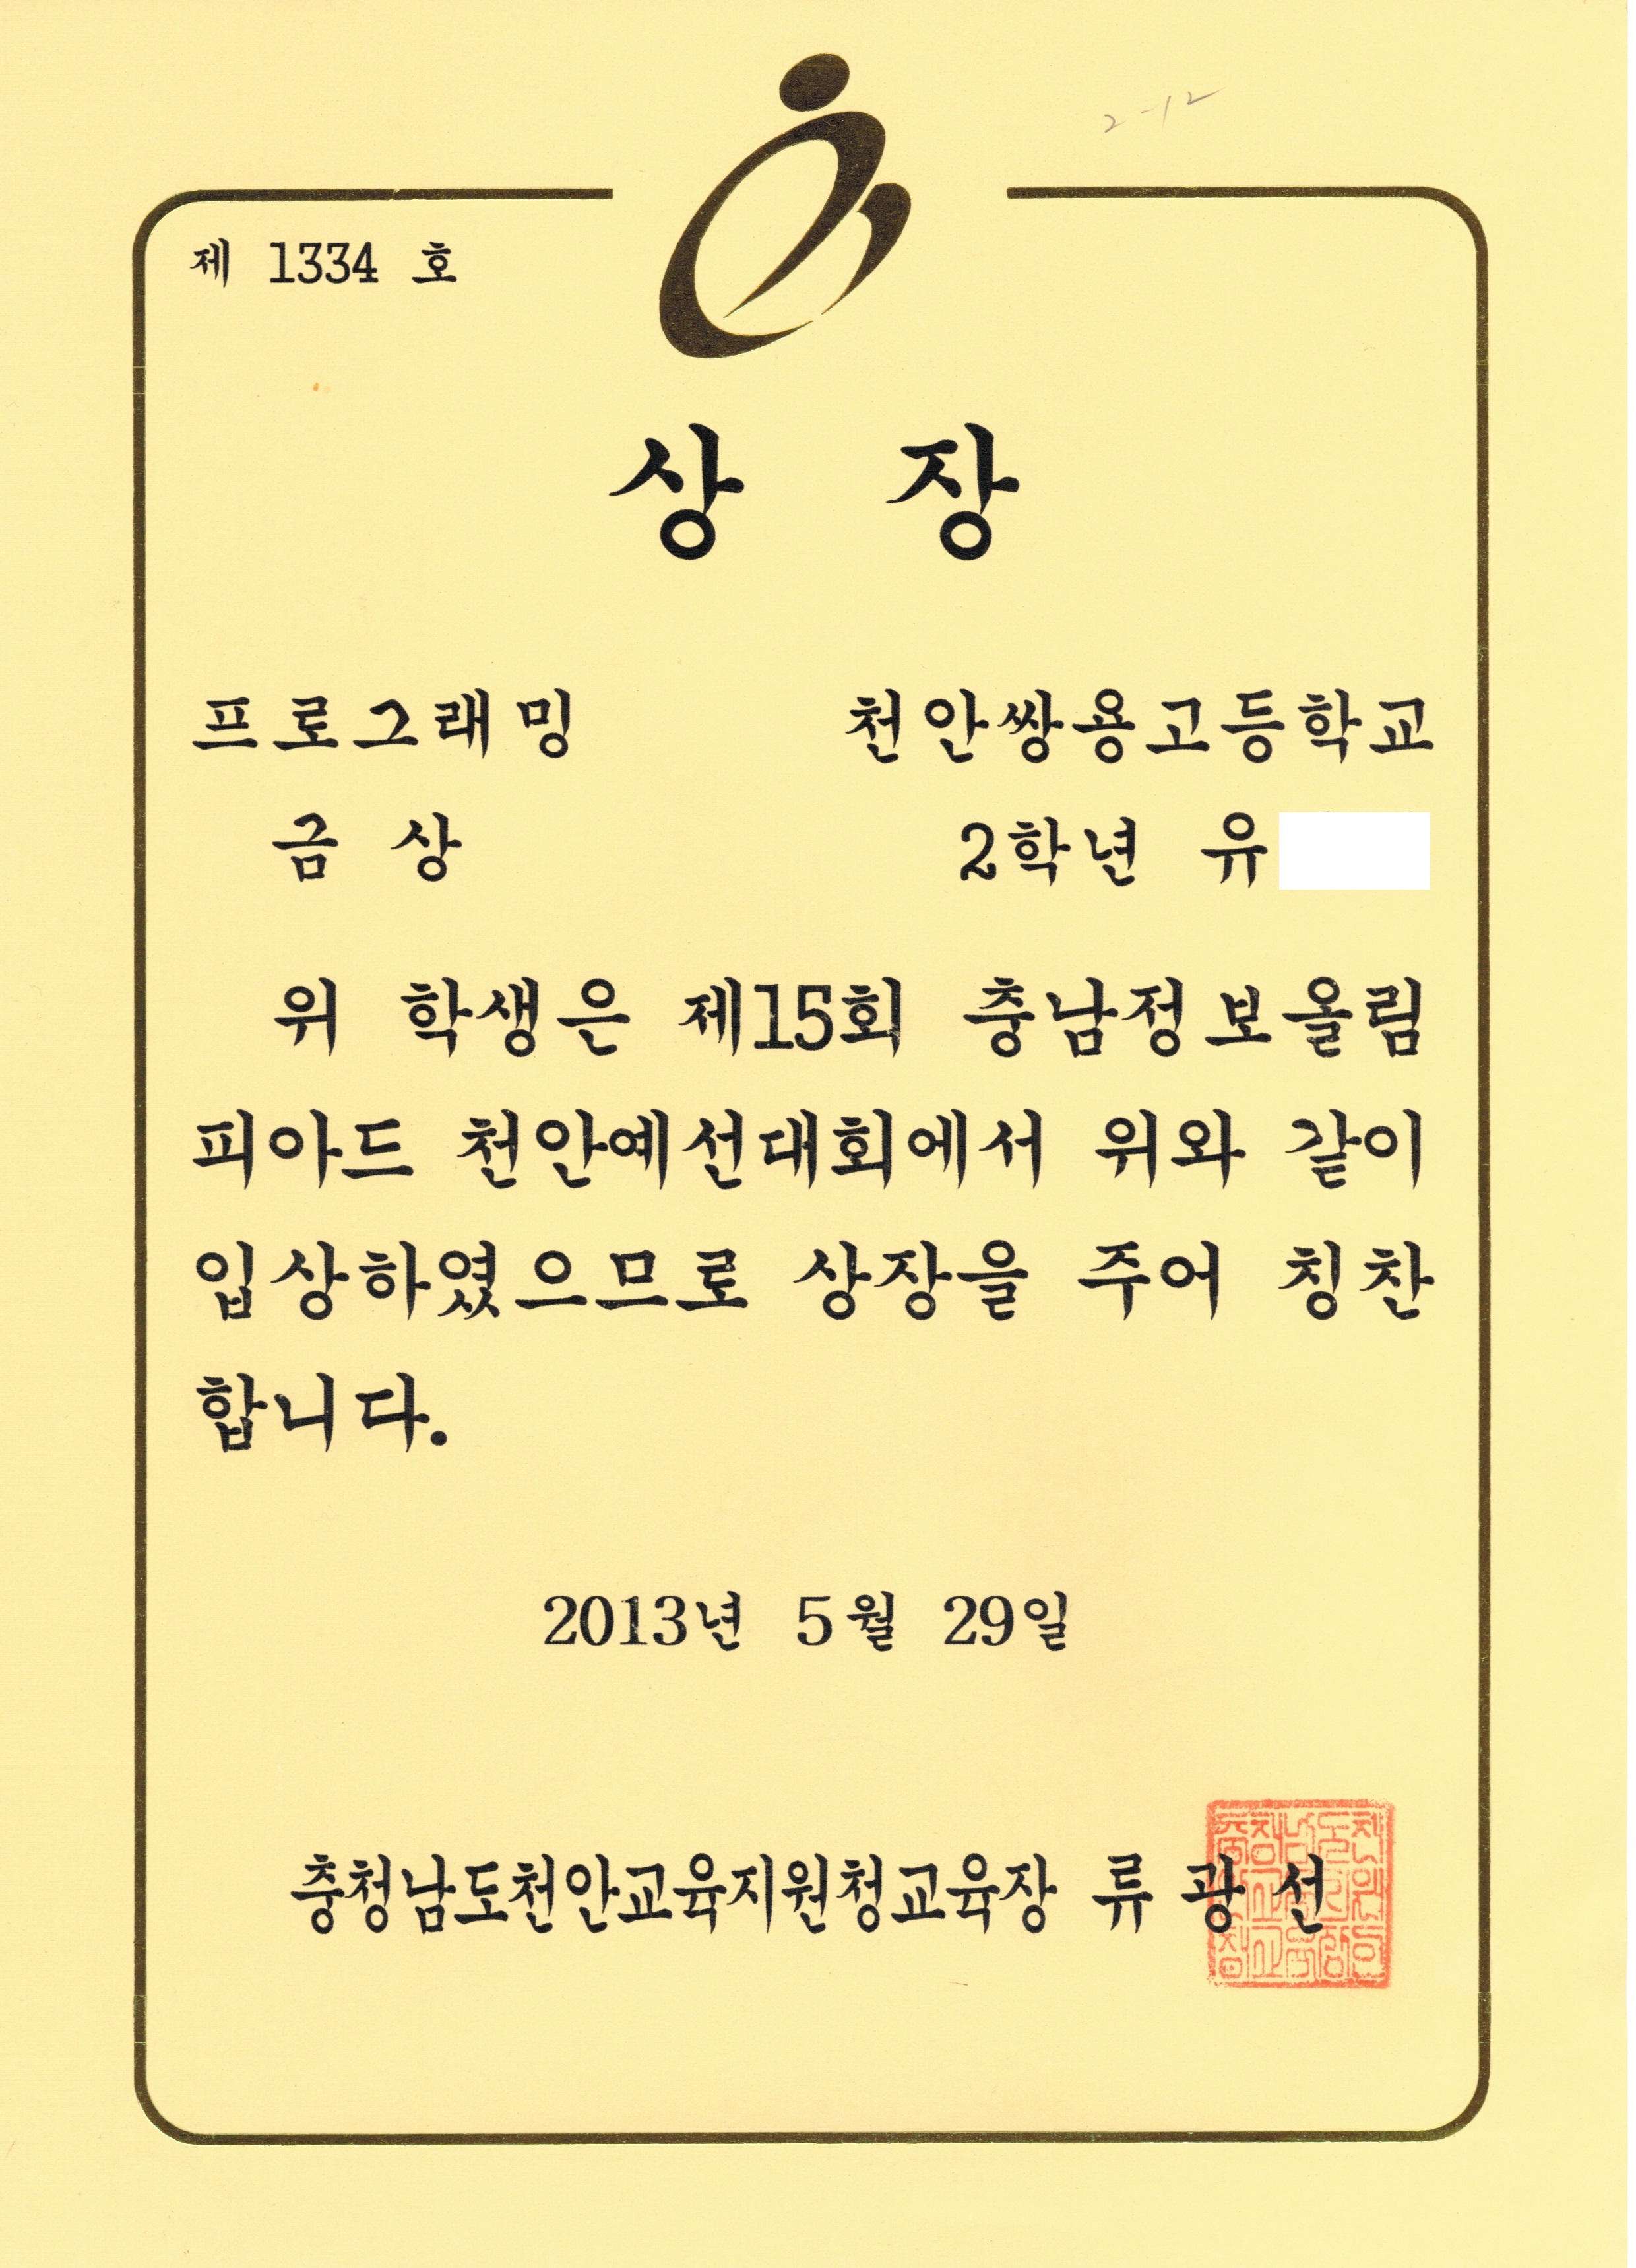 2-12
제 1334 호
상 장
프로그래밍 천안쌍용고등학교
금 상 2학년 유
위 학생은 제15회 충남정보올림
피아드 천안예선대회에서 위와 같이
입상하였으므로 상장을 주어 칭찬
합니다.
2013년 5월 29일
충청남도천안교육지원청교육장 류 광 선